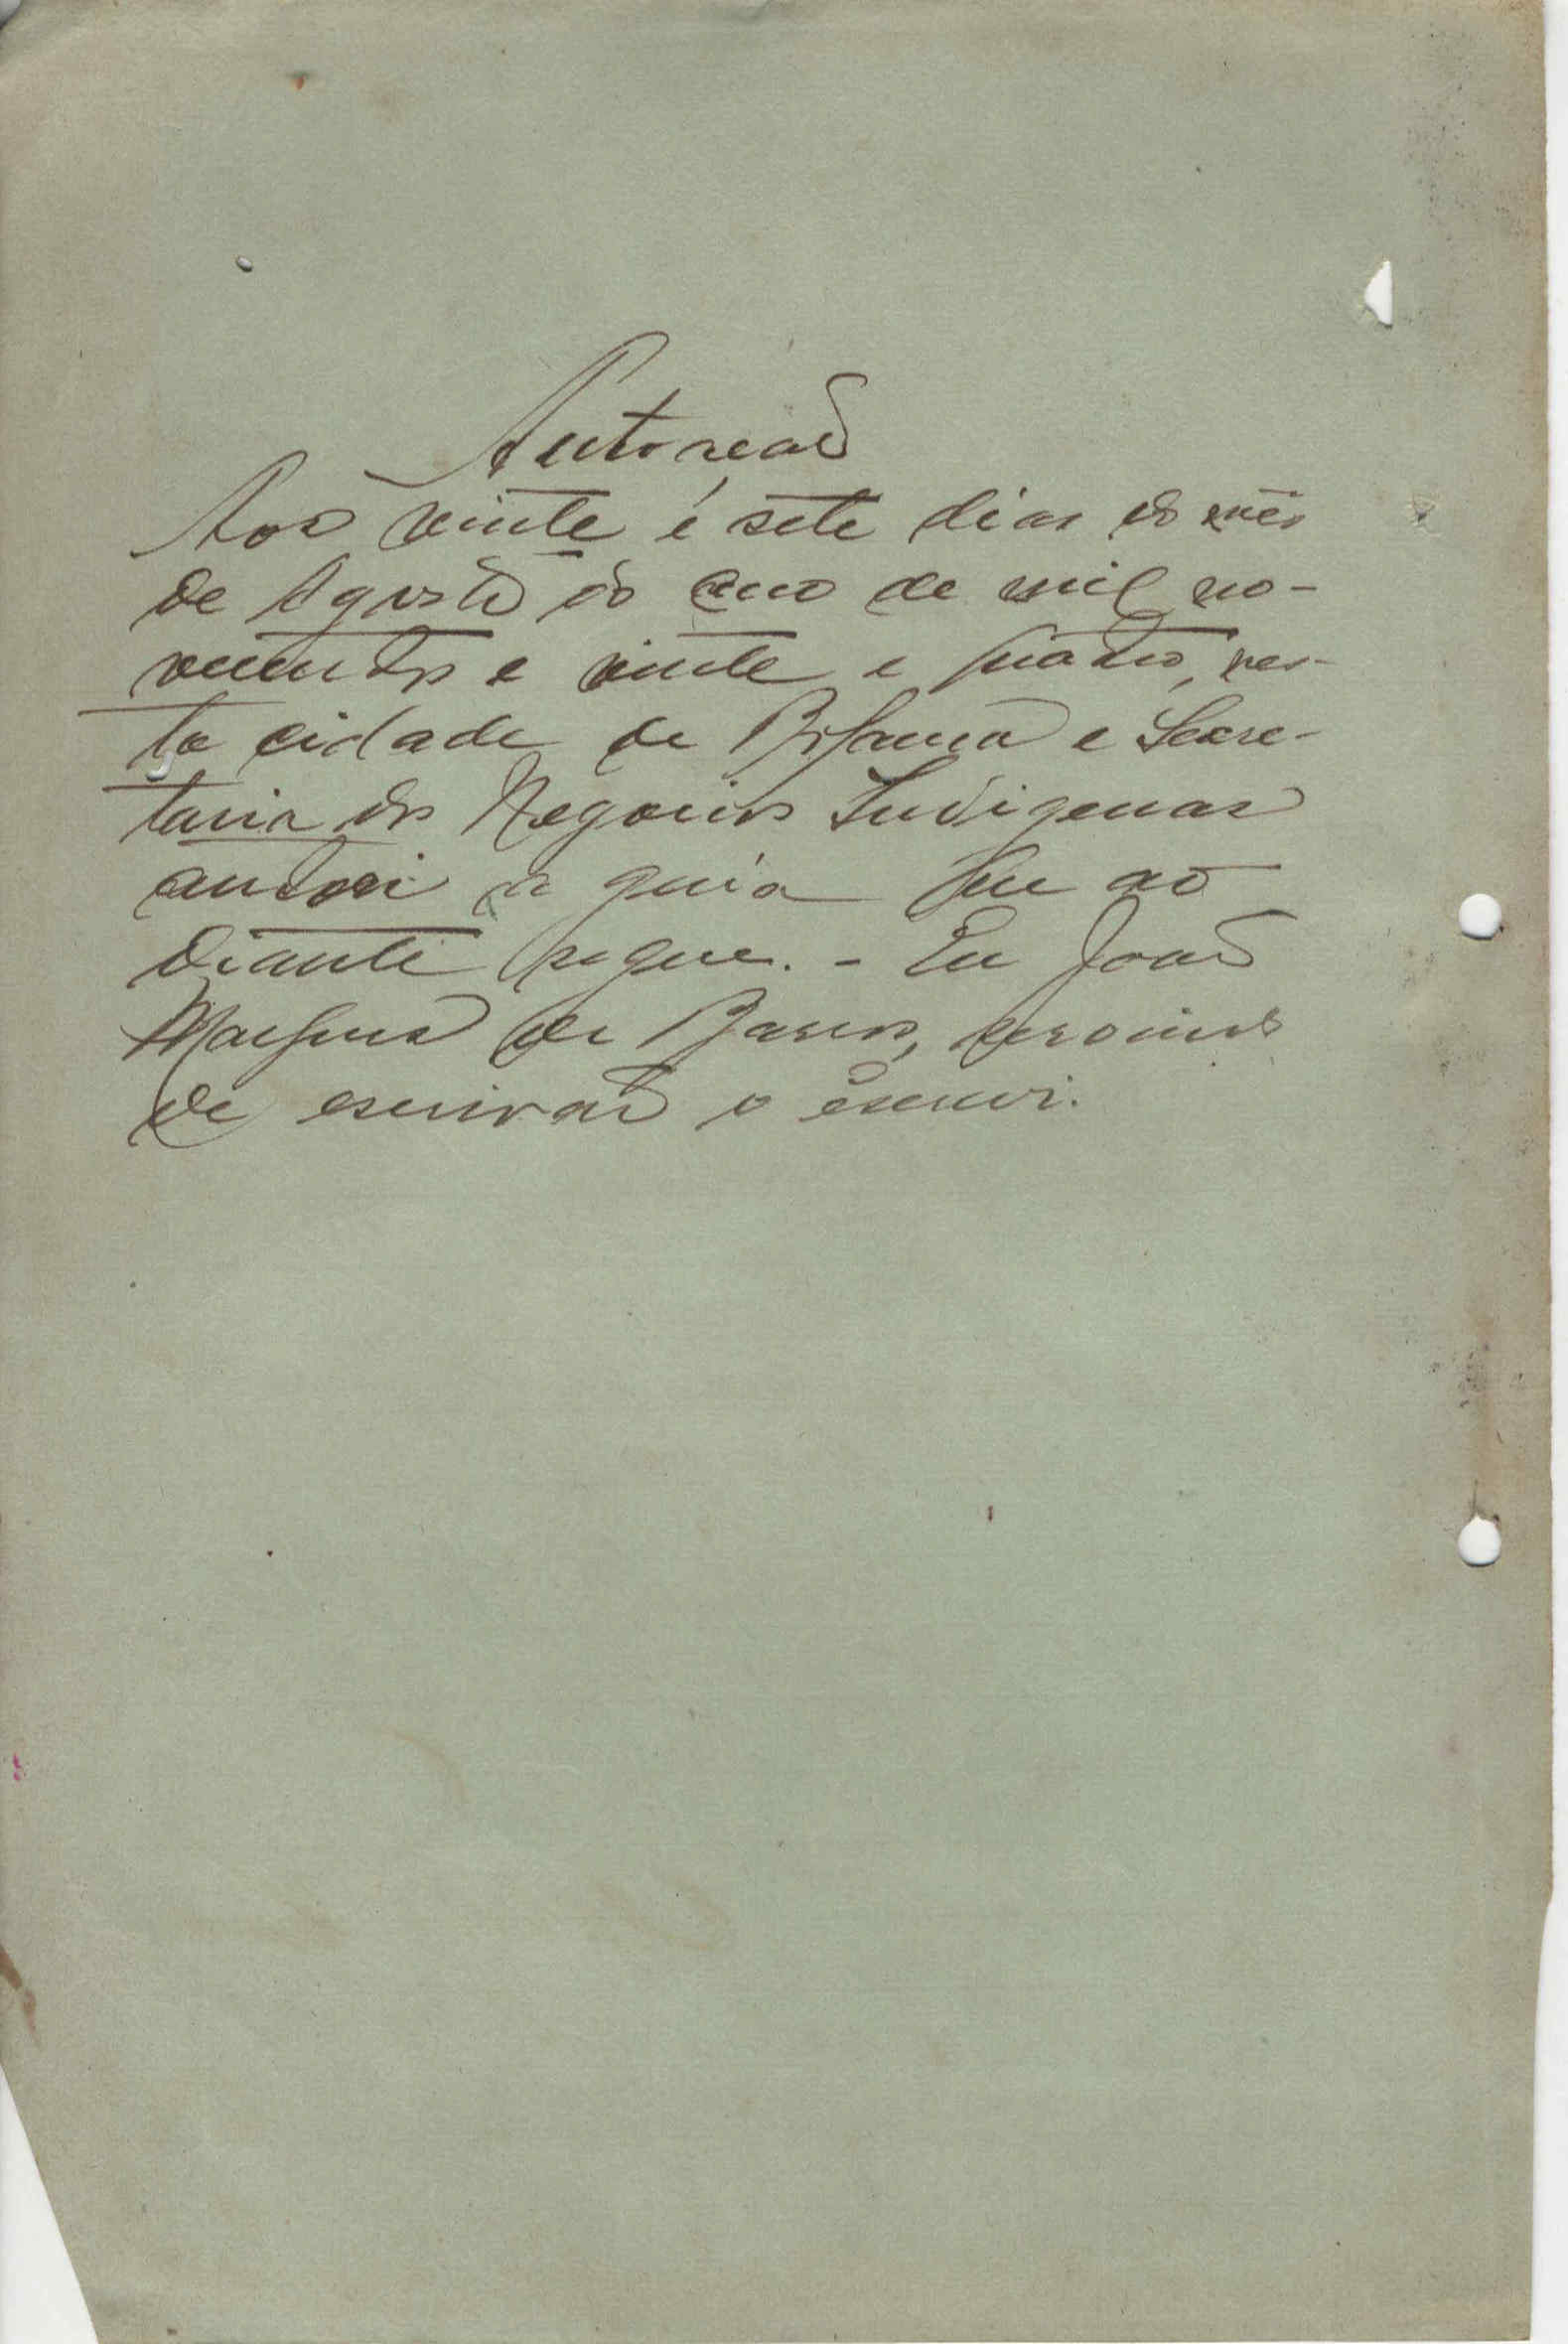 Autoação
Aos vinte e sete dias do mês
de Agosto do ano de mil no-
vecentos e vinte e quatro, nes-
ta cidade de Bolama e Secre-
taria dos Negocios Indigenas
autoei a guia que ao
diante segue. - Eu João
Marques de Barros, servindo
de escrivão o escrevi.